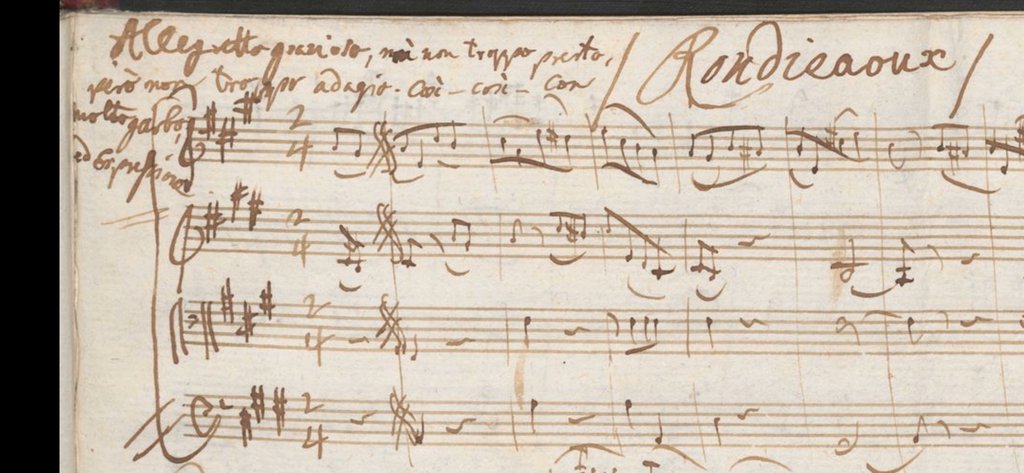 Allegretto grazioso, mà non troppo presto, / Rondieaoux /
però non troppo adagio. Così - così - con
molto garbo,
ed Espressione
2
4
2
4
2
4
2
4